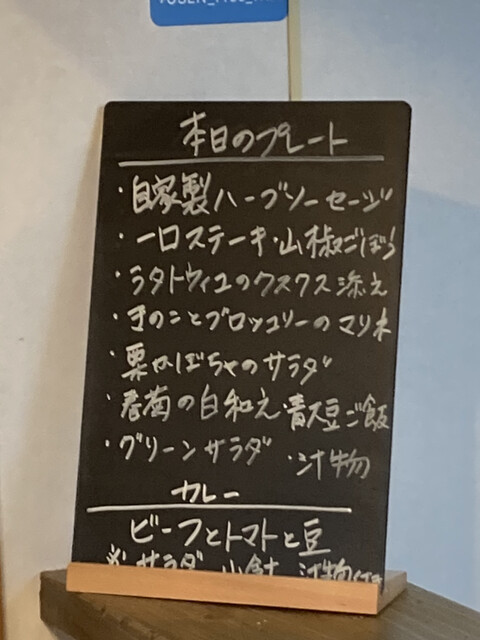 本日のプレート
・自家製ハーブソーセージ
・一口ステーキ・山椒ごぼう
・ラタトゥイユのクスクス添え
・きのことブロッコリーのマリネ
・栗かぼちゃのサラダ
・春菊の白和え・青大豆ご飯
・グリーンサラダ ・汁物
カレー
ビーフとトマトと豆
※サラダ 小鉢 汁物付き